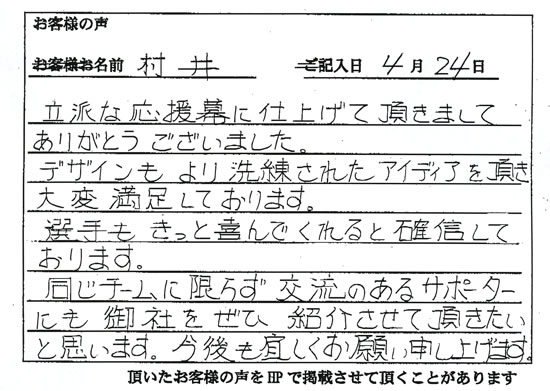 お客様の声
お客様お名前 村井 ご記入日 4月24日
立派な応援幕に仕上げて頂きまして
ありがとうございました。
デザインも より洗練されたアイディアを頂き
大変満足しております。
選手も きっと喜んでくれると確信して
おります。
同じチームに限らず 交流のあるサポーター
にも 御社を ぜひ 紹介させて頂きたい
と思います。今後も宜しくお願い申し上げます。
頂いたお客様の声をHPで掲載させて頂くことがあります